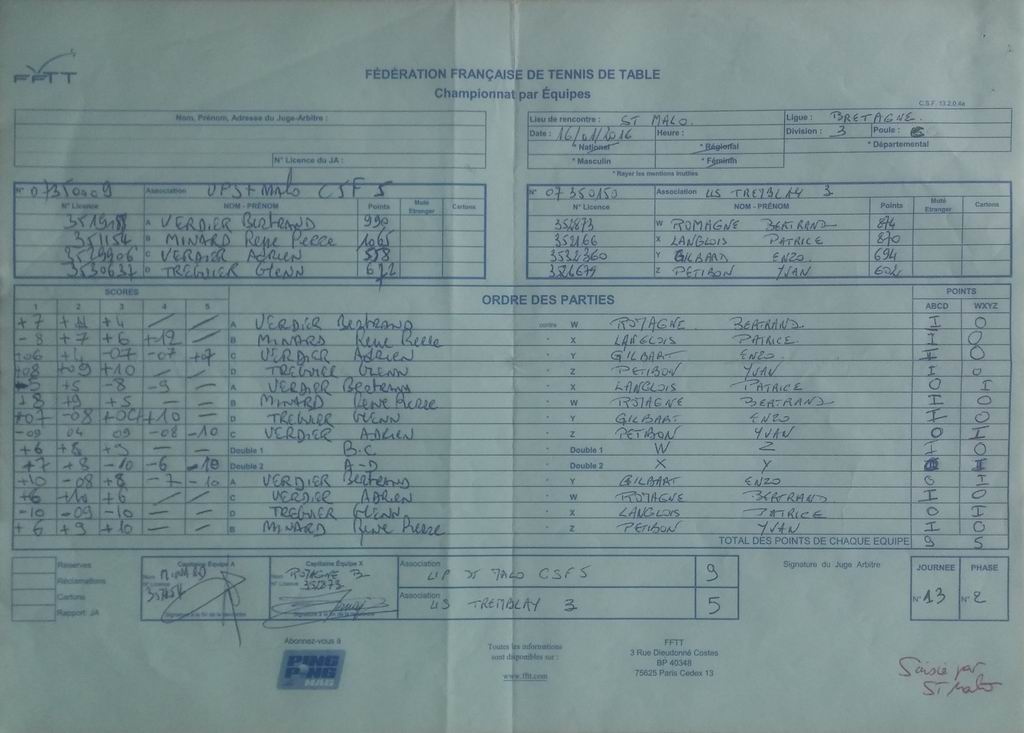 FFTT
FÉDÉRATION FRANÇAISE DE TENNIS DE TABLE
Championnat par Équipes
C.S.F. 13.2.0.4a
Nom, Prénom, Adresse du Juge-Arbitre :
N° Licence du JA :
Lieu de rencontre : ST MALO. Ligue : BRETAGNE.
Date : 16/01/2016 Heure : Division : 3 Poule :
* National * Régional * Départemental
* Masculin * Féminin
* Rayer les mentions inutiles
N° 07350009 Association UPSt MALO CSF 5
N° Licence NOM - PRÉNOM Points Muté Etranger Cartons
A VERDIER Bertrand 990
351154 B MINARD René Pierre 1065
3529906 C VERDIER ADRIEN 558
3530637 D TREGUIER GLENN 672
N° 07350150 Association US TREMBLAY 3
N° Licence NOM - PRÉNOM Points Muté Etranger Cartons
352873 W ROMAGNE BERTRAND 874
352166 X LANGLOIS PATRICE 870
3532360 Y GILBART ENZO 694
3526679 Z PETIBON YVAN 602
SCORES ORDRE DES PARTIES POINTS
1 2 3 4 5 ABCD WXYZ
+7 +11 +4 / / A VERDIER Bertrand contre W ROMAGNE BERTRAND I 0
-8 +7 +6 +12 / B MINARD René Pierre X LANGLOIS PATRICE I 0
+06 +4 -07 -07 +7 C VERDIER ADRIEN Y GILBART ENZO I 0
+08 +09 +10 / D TREGUIER GLENN Z PETIBON YVAN I 0
-5 +5 -8 -9 — A VERDIER Bertrand X LANGLOIS PATRICE 0 I
+8 +9 +5 — — B MINARD René Pierre W ROMAGNE BERTRAND I 0
+07 -08 +10 — D TREGUIER GLENN Y GILBART ENZO I 0
-09 04 09 -08 -10 C VERDIER ADRIEN Z PETIBON YVAN 0 I
+6 +8 +9 — — Double 1 B-C Double 1 W Z I 0
+7 +8 -10 -6 -10 Double 2 A-D Double 2 X Y I
+10 -08 +8 -7 -10 A VERDIER Bertrand Y GILBART ENZO 0 I
+6 +10 +6 / / C VERDIER ADRIEN W ROMAGNE BERTRAND I 0
-10 -09 -10 — — D TREGUIER GLENN X LANGLOIS PATRICE 0 I
+6 +9 +10 — — B MINARD René Pierre Z PETIBON YVAN I 0
TOTAL DES POINTS DE CHAQUE EQUIPE 9 5
Réserves
Réclamations
Cartons
Rapport JA
Capitaine Équipe A
MINARD
351154
Capitaine Équipe X
ROMAGNE B
352873
Association UP St MALO CSF5 9
Association US TREMBLAY 3 5
Signature du Juge Arbitre
JOURNEE PHASE
N° 13 N° 2
Abonnez-vous à
PING PONG MAG
Toutes les informations
sont disponibles sur :
www.fftt.com
FFTT
3 Rue Dieudonné Costes
BP 40348
75625 Paris Cedex 13
Saisie par
St Malo